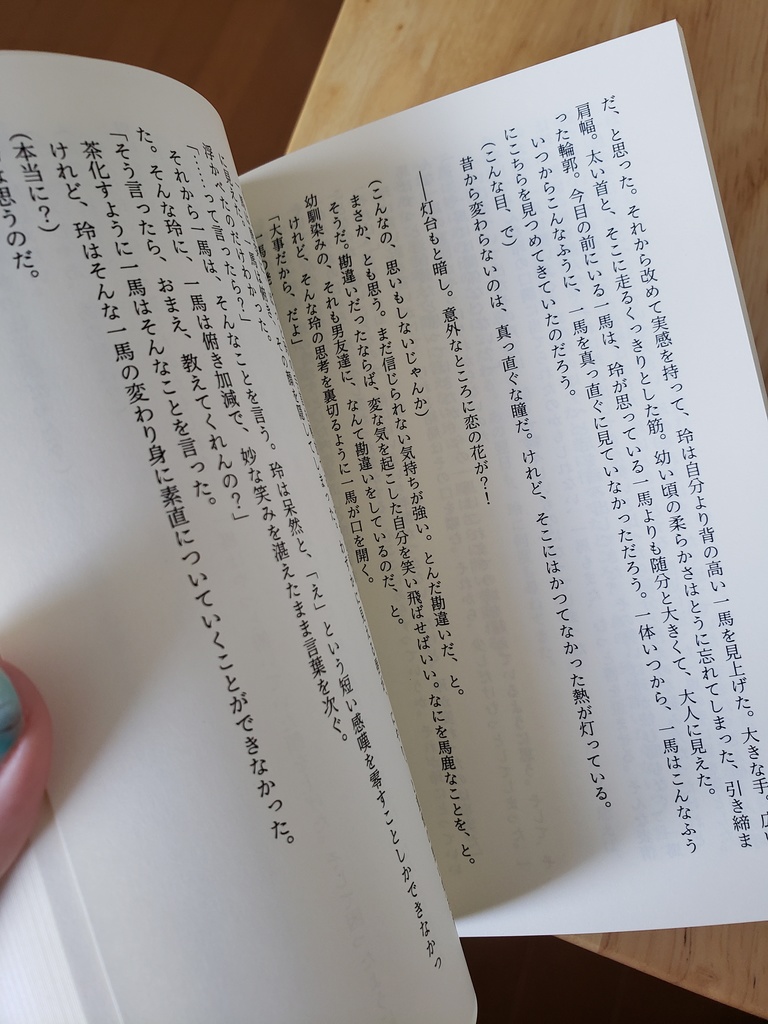 だ、と思った。それから改めて実感を持って、玲は自分より背の高い一馬を見上げた。大きな手。広い
肩幅。太い首と、そこに走るくっきりとした筋。幼い頃の柔らかさはとうに忘れてしまった、引き締ま
った輪郭。今目の前にいる一馬は、玲が思っている一馬よりも随分と大きくて、大人に見えた。
いつからこんなふうに、一馬を真っ直ぐに見ていなかっただろう。一体いつから、一馬はこんなふう
にこちらを見つめてきていたのだろう。
(こんな目、で)
昔から変わらないのは、真っ直ぐな瞳だ。けれど、そこにはかつてなかった熱が灯っている。
――灯台もと暗し。意外なところに恋の花が?!
(こんなの、思いもしないじゃんか)
まさか、とも思う。まだ信じられない気持ちが強い。とんだ勘違いだ、と。
そうだ。勘違いだったならば、変な気を起こした自分を笑い飛ばせばいい。なにを馬鹿なことを、と。
幼馴染みの、それも男友達に、なんて勘違いをしているのだ、と。
けれど、そんな玲の思考を裏切るように一馬が口を開く。
「大事だから、だよ」
浮かべたのだけわかった。
「……って言ったら?」
それから一馬は、そんなことを言う。玲は呆然と、「え」という短い感嘆を零すことしかできなかっ
た。そんな玲に、一馬は俯き加減で、妙な笑みを湛えたまま言葉を次ぐ。
「そう言ったら、おまえ、教えてくれんの?」
茶化すように一馬はそんなことを言った。
けれど、玲はそんな一馬の変わり身に素直についていくことができなかった。
(本当に?)
思うのだ。